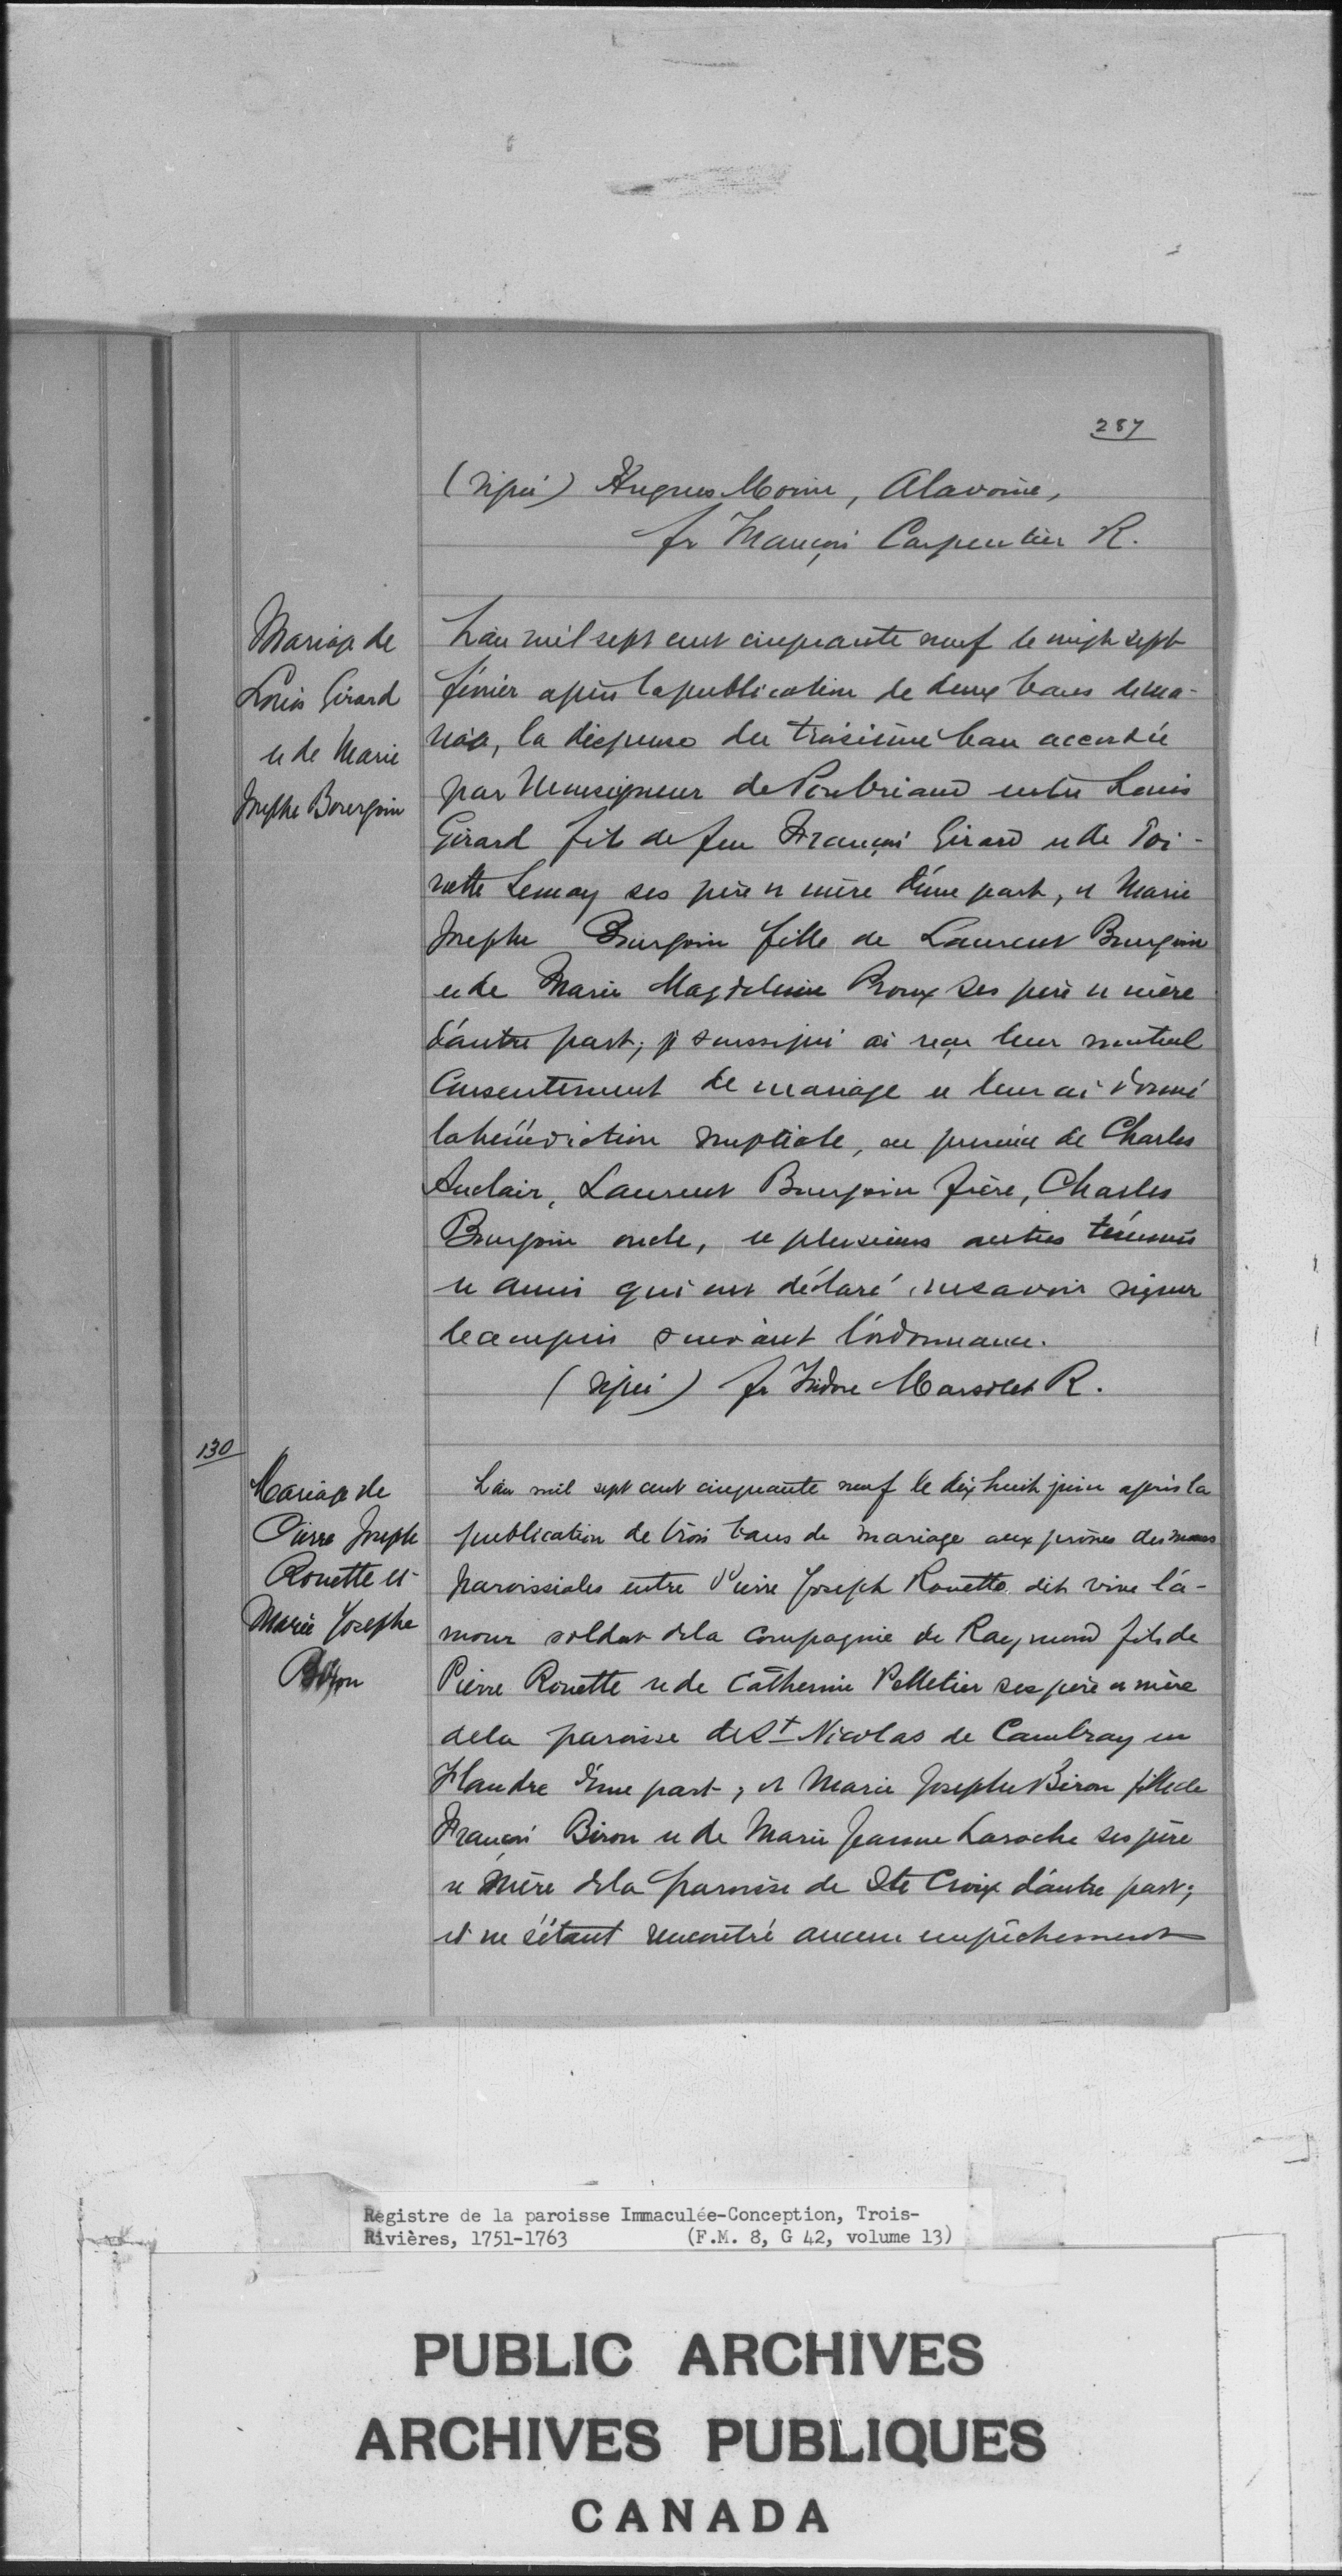 287
(signé) Hugues Morin, Alavoine,
fr François Carpentier R.
Mariage de
Louis Girard
et de Marie
Josephe Bourgoin
L'an mil sept cent cinquante neuf le vingt sept
février après la publication de deux bans de ma-
riage, la dispense du troisième ban accordée
par Monseigneur de Pontbriand entre Louis
Girard fils de feu François Girard et de Toi-
nette Lemay ses père et mère d'une part, et Marie
Josephe Bourgoin fille de Laurent Bourgoin
et de Marie Magdeleine Proux ses père et mère
d'autre part; je soussigné ai reçu leur mutuel
consentement de mariage et leur ai donné
la bénédiction nuptiale, en presence de Charles
Auclair, Laurent Bourgoin frère, Charles
Bourgoin oncle, et plusieurs autres témoins
et amis qui ont déclaré ne savoir signer
de ce enquis suivant l'ordonnance.
(signé) fr Isidore Marsolet R.
130
Mariage de
Pierre Joseph
Rouette et
Marie Josephe
Biron
L'an mil sept cent cinquante neuf le dix huit juin après la
publication de trois bans de mariage aux prônes des messes
paroissiales entre Pierre Joseph Rouette dit vive l'a-
mour soldat de la compagnie de Raymond fils de
Pierre Rouette et de Catherine Pelletier ses père et mère
de la paroisse de St Nicolas de Cambray en
Flandre d'une part; et Marie Josephe Biron fille de
François Biron et de Marie Jeanne Laroche ses père
et mère de la paroisse de Ste Croix d'autre part;
et ne s'étant rencontré aucun empêchement
Registre de la paroisse Immaculée-Conception, Trois-
Rivières, 1751-1763 (F.M. 8, G 42, volume 13)
PUBLIC ARCHIVES
ARCHIVES PUBLIQUES
CANADA